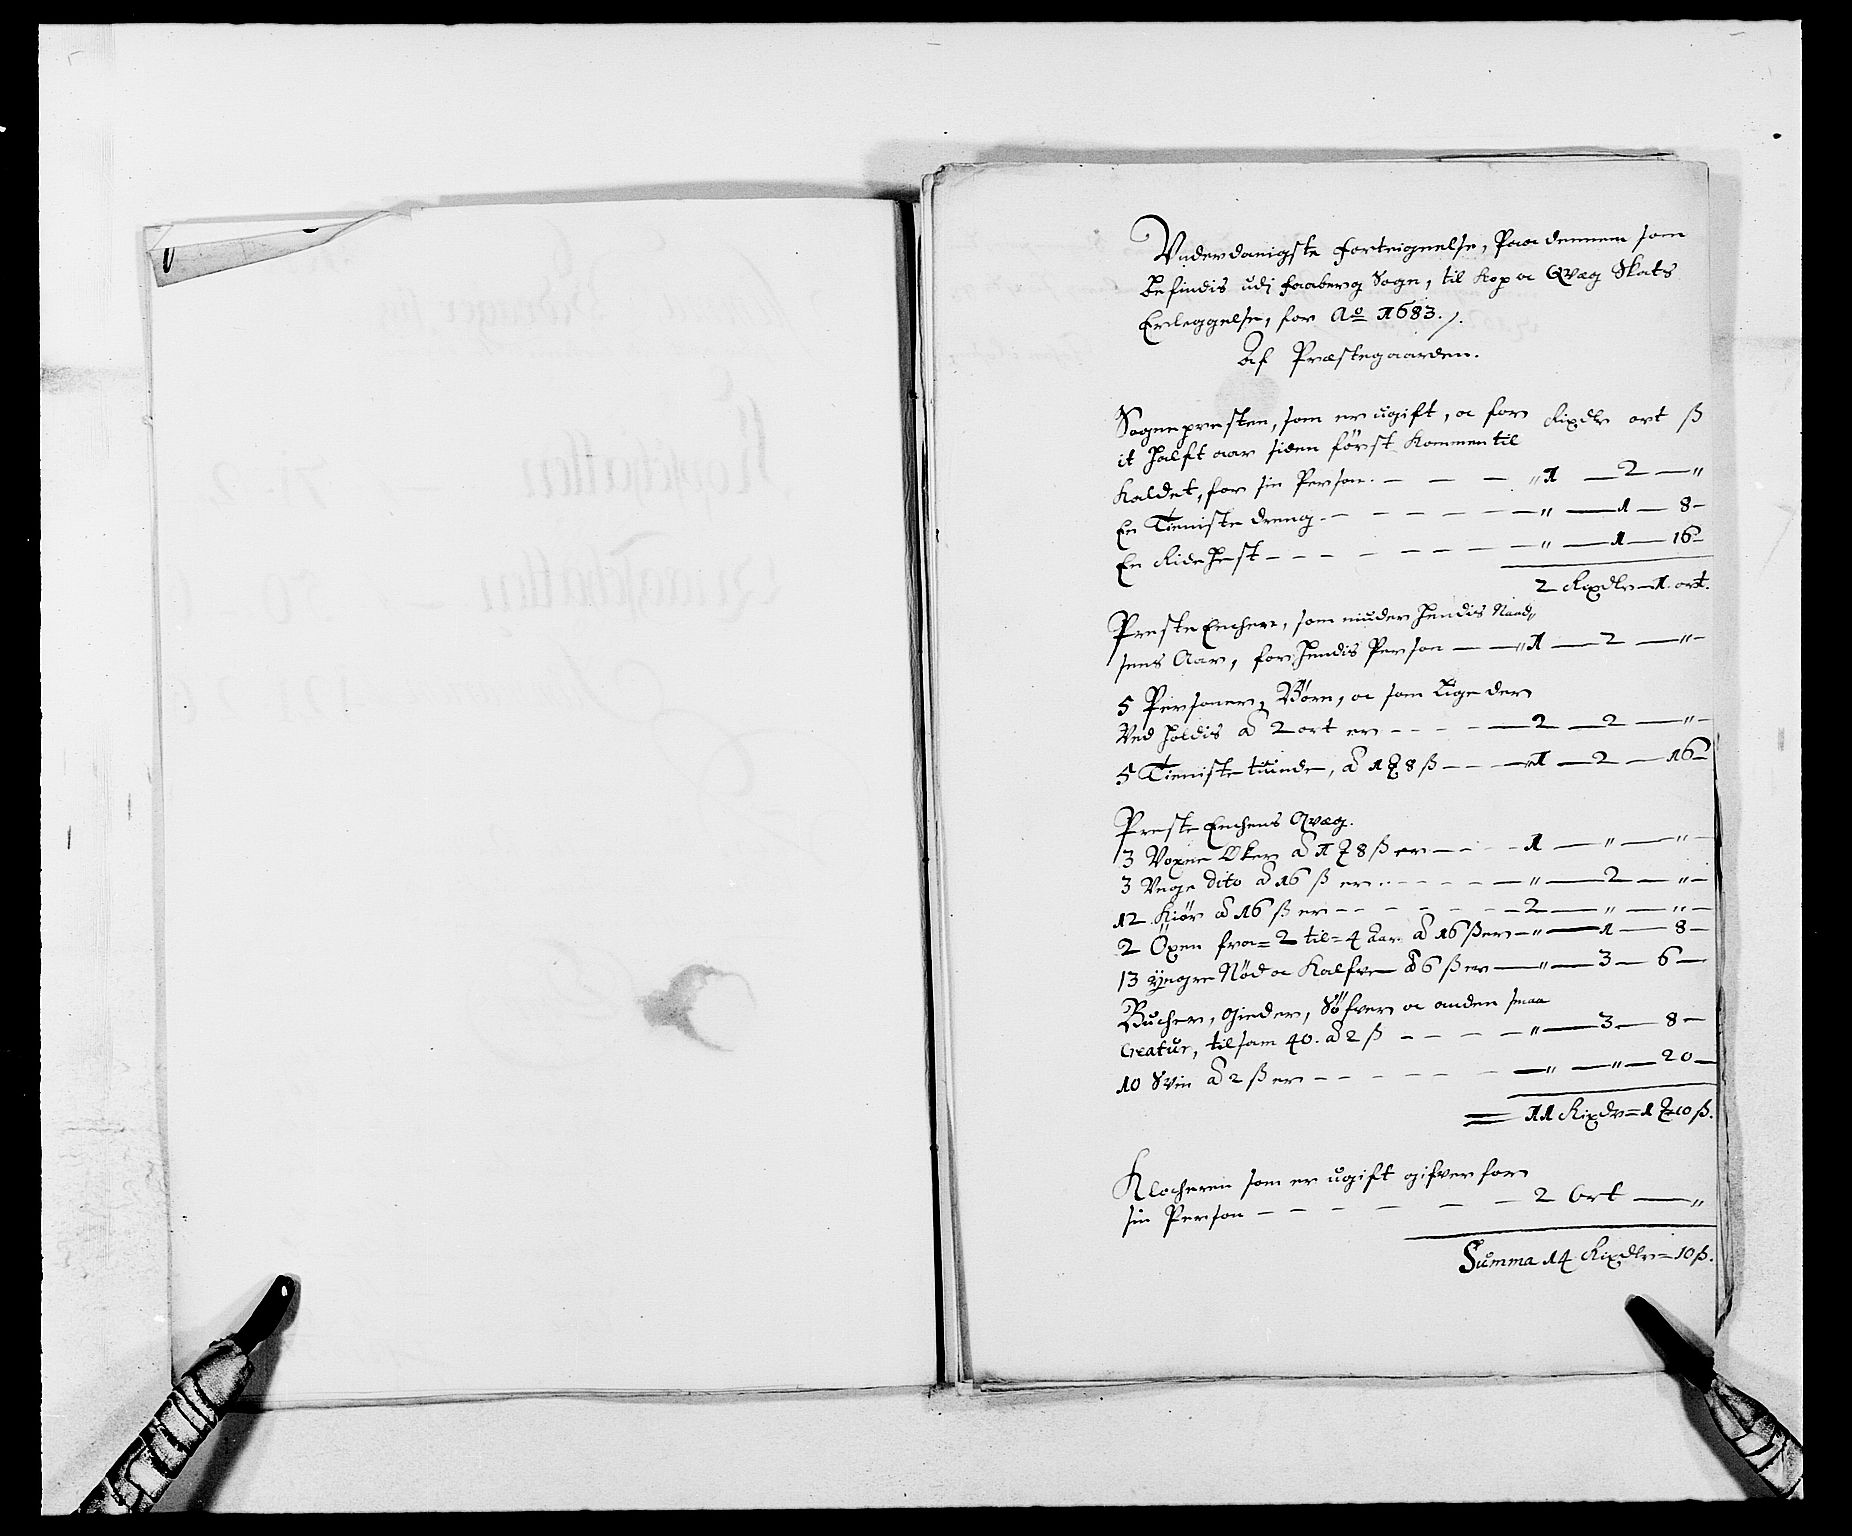 Vnderdanigste Forteignelse, Paa dennem som
befindis udj Faaberg Sogn, til Kop oc Qvæg Skats
Erleggelse, for Ao 1683 ./.
Af Præstegaarden.
Sogneprесten, som er ugift, oc for Rixdlr ort ß
it halft aar siden først Kommen til
Kaldet, for sin Person. — — — „ 1 — 2 — „
En Tieniste dreng - — — — — — „ — 1 — 8 -
En Ride Hest - — — — — — — „ — 1 — 16 -
2 Rixdlr — 1. ort.
Preste Enchen, som niuder hendis Naad,,
sens Aar, for hendis Person — — „ 1 — 2 — „ -
5 Personer, Børn, oc som lige der
Ved holdis à 2 ort er - - - — 2 — 2 — „ -
5 Tieniste tiunde, à 1 ₰ 8 ß - - - „ 1 — 2 — 16 -
Preste Enchens Qvæg.
3 Voxne Øker à 1 ₰ 8 ß er — - - - 1 — „ — „ -
3 Vnge dito à 16 ß er. - - - - — „ — 2 — „ -
12 Kiør à 16 ß er - - - - - - 2 — „ — „ -
2 Öxen fra = 2 til = 4 Aar à 16 ß er - „ — 1 — 8 -
13 yngre Nød oc Kalfve à 6 ß er — „ — 3 — 6 —
Bucher, gieder, Søfver oc anden smaa
Creatur, tilsam 40. à 2 ß - - - - „ — 3 — 8 -
10 Svin à 2 ß er - - - - - — „ — „ — 20 -
= 11 Rixdr = 1 ₰ 10 ß.
Klocheren som er ugift gifver for
sin Person - - - - - - 2 Ort — „
Summa 14 Rixdlr = 10 ß.